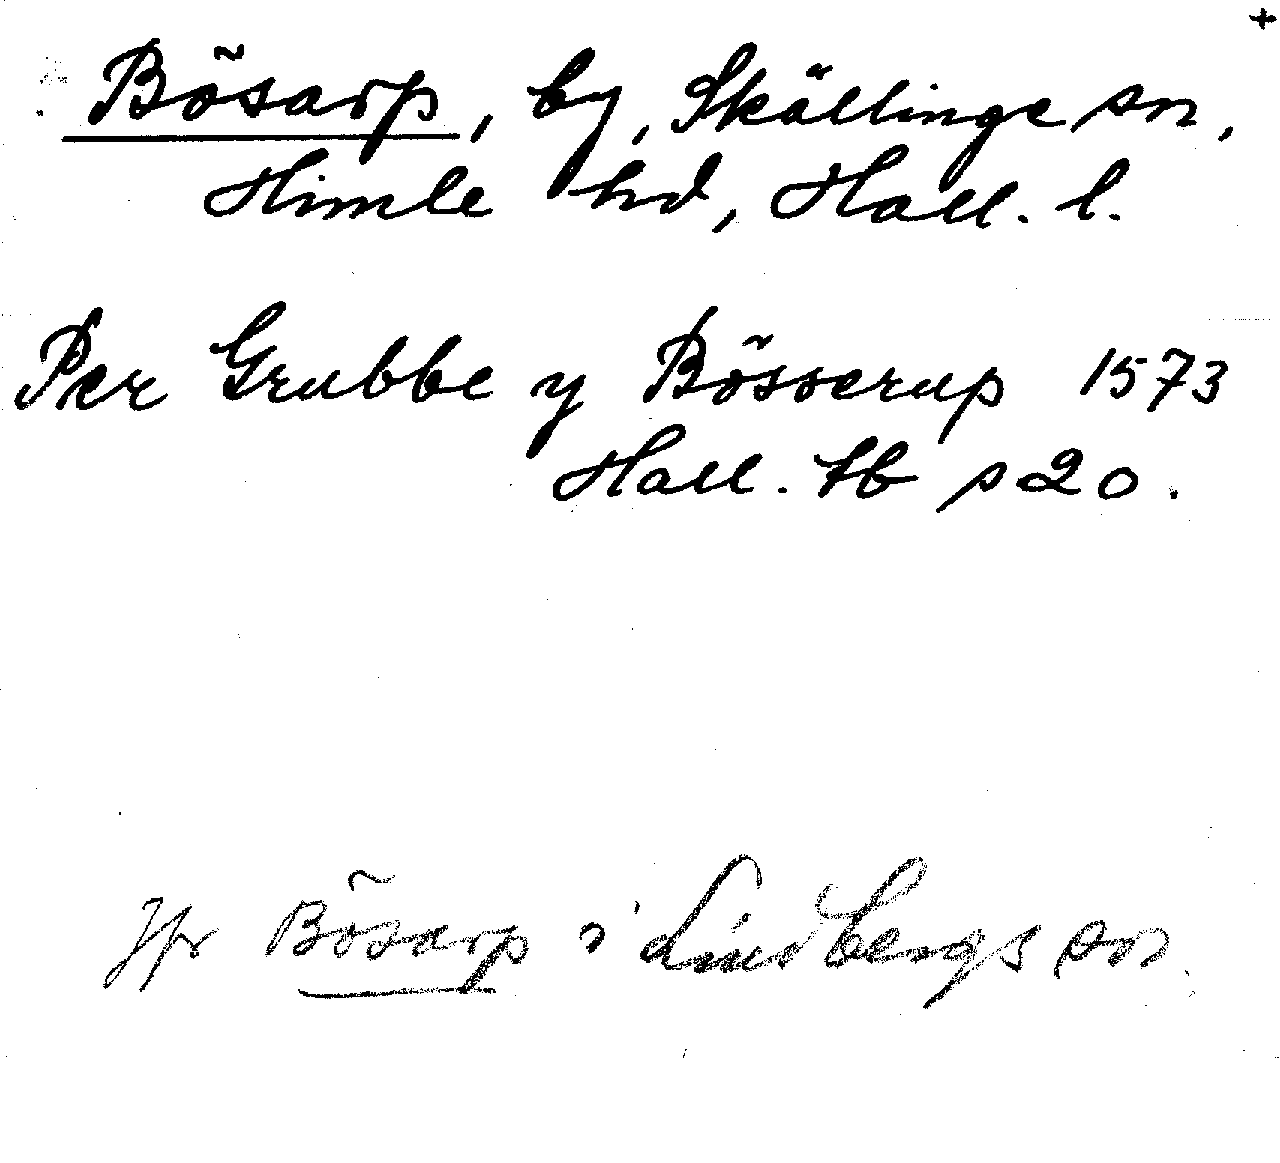 +
Bösarp, by, Skällinge sn,
Himle hd, Hall. l.
Per Grubbe y Bösserup 1573
Hall. tb s 20.
Jfr Bösarp i Lindbergs sn.